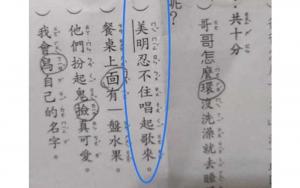 ？共十分
呢？
（ ）哥哥怎麼環沒洗澡就去睡
（ ）美明忍不住唱起歌來。
（ ）餐桌上面有一盤水果。
（ ）他們扮起鬼真可愛。
（ ）我會鳥自己的名字。